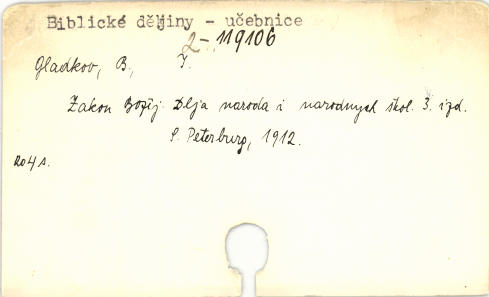 Biblické dějiny - učebnice
2-119106
Gladkov, B., I.
Zakon Božij. Dlja naroda i narodnych škol. 3. izd.
S. Peterburg, 1912.
204 s.